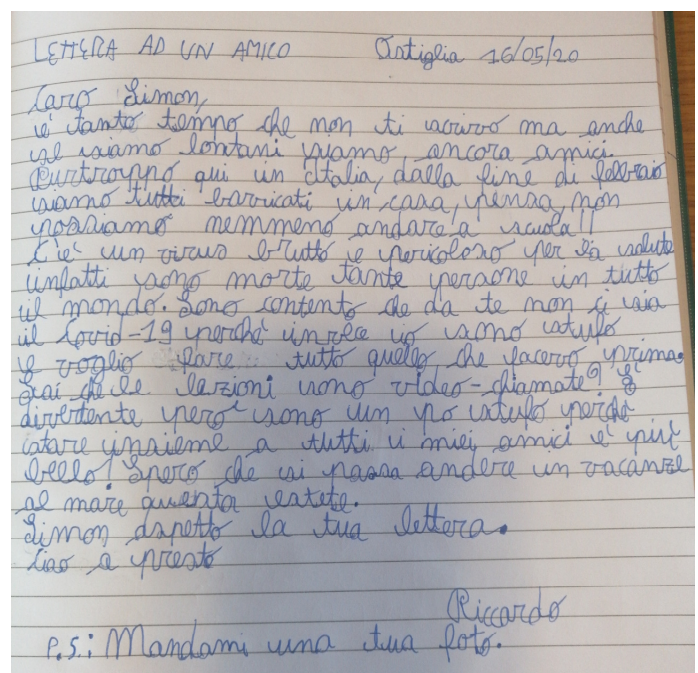 LETTERA AD UN AMICO Ostiglia 16/05/20
Caro Simon,
è tanto tempo che non ti scrivo ma anche
se siamo lontani siamo ancora amici.
Purtroppo qui in Italia, dalla fine di febbraio
siamo tutti barricati in casa, pensa, non
possiamo nemmeno andare a scuola!!
C'è un virus brutto e pericoloso per la salute
infatti sono morte tante persone in tutto
il mondo. Sono contento che da te non ci sia
il Covid-19 perché invece io sono stufo
e voglio fare tutto quello che facevo prima.
Sai che le lezioni sono video-chiamate? È
divertente però sono un po stufo perché
stare insieme a tutti i miei amici è più
bello! Spero che si possa andere in vacanze
al mare questa estete.
Simon aspetto la tua lettera.
Ciao a presto
Riccardo
P.S.: Mandami una tua foto.